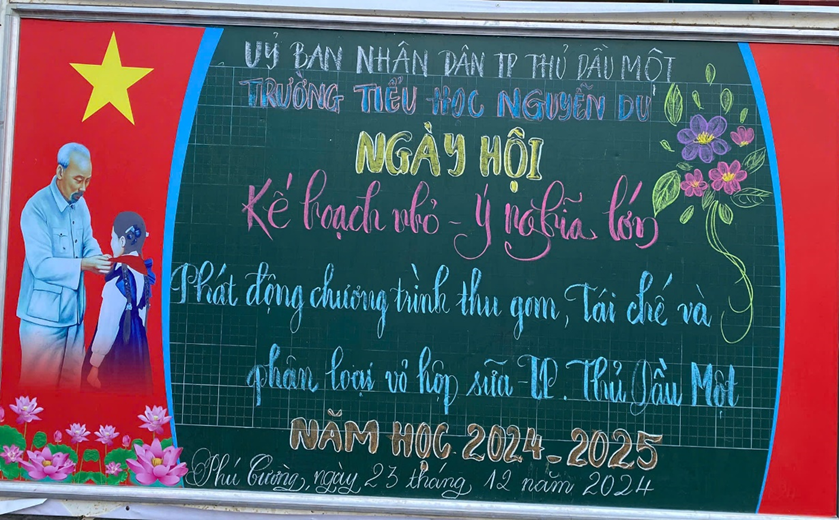 UỶ BAN NHÂN DÂN TP THỦ DẦU MỘT
TRƯỜNG TIỂU HỌC NGUYỄN DU
NGÀY HỘI
Kế hoạch nhỏ - Ý nghĩa lớn
Phát động chương trình thu gom, Tái chế và
phân loại vỏ hộp sữa - TP. Thủ Dầu Một
NĂM HỌC 2024-2025
Phú Cường, ngày 23 tháng 12 năm 2024